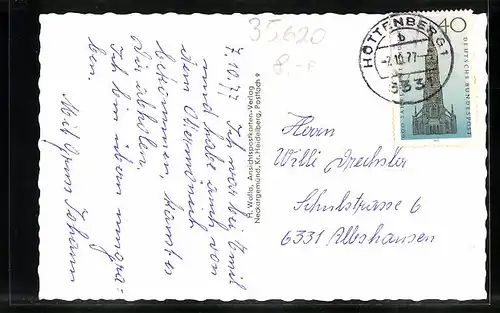 35620
8.-
7.10.77 Ich war bei Emil
und habe auch von
dem
bekommen, kannst
Du abholen.
Ich bin übern
ben.
Mit Gruss Johann
H. Wolla, Ansichtspostkarten-Verlag
Neckargemünd, Kr. Heidelberg, Postfach 9
HÜTTENBERG 1
b
-7.10.77-
633
40
DEUTSCHE BUNDESPOST
Herrn
Willi Drechsler
Schulstrasse 6
6331 Albshausen